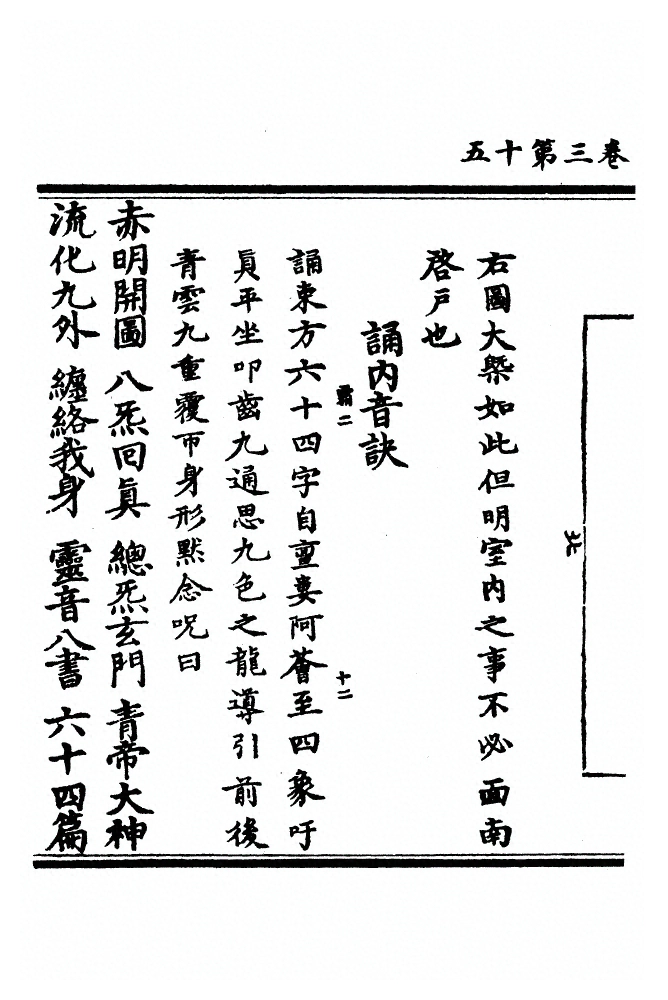 卷三第十五
北
右圖大槩如此但明室內之事不必面南
啓戶也
誦內音訣
霸二
十二
誦東方六十四字自亶婁阿薈至四象吁
員平坐叩齒九通思九色之龍導引前後
青雲九重覆帀身形默念呪曰
赤明開圖 八炁回眞 總炁玄門 青帝大神
流化九外 纏絡我身 靈音八書 六十四篇